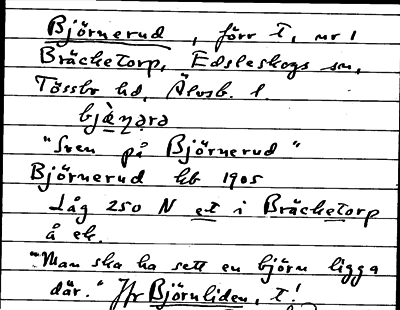 Björnerud, förr t, nr 1
Bräcketorp, Edsleskogs sn,
Tössbo hd, Älvsb. l.
bjæ̀ṇərə
"Sven på Björnerud"
Björnerud kb 1905
Låg 250 N et i Bräcketorp
å ek.
"Man ska ha sett en björn ligga
där." Jfr Björnliden, t!